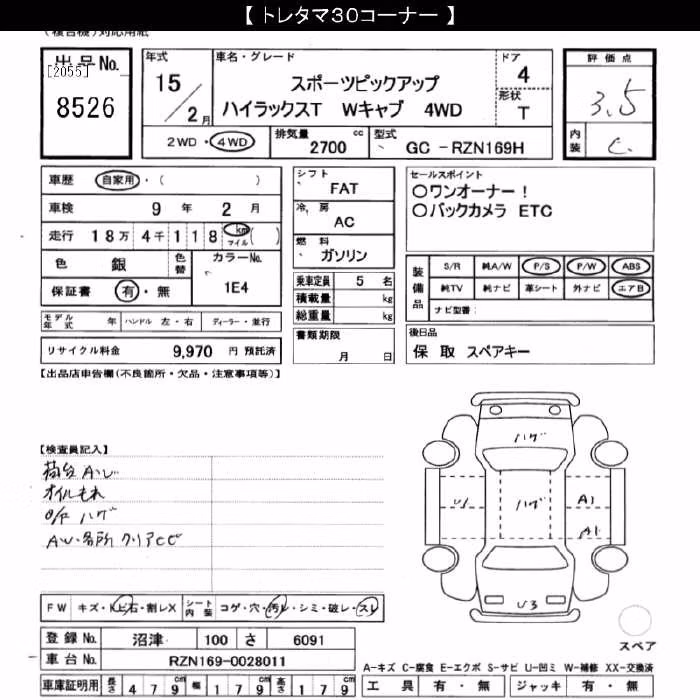 【 トレタマ30コーナー 】
(複合機)対応用紙
出品No.
[2055]
8526
年式
15/2月
車名・グレード
スポーツピックアップ
ハイラックスT Wキャブ 4WD
ドア
4
形状
T
評価点
3.5
内装
C
2WD・4WD
排気量 2700 cc
型式 GC - RZN169H
車歴 自家用・( )
車検 9年 2月
走行 18万4千118 km マイル ( )
色 銀 色替
カラーNo. 1E4
保証書 有・無
モデル年式 年 ハンドル 左・右 ディーラー・並行
リサイクル料金 9,970 円 預託済
シフト FAT
冷房 AC
燃料 ガソリン
乗車定員 5 名
積載量 kg
総重量 kg
書類期限
月 日
セールスポイント
○ワンオーナー!
○バックカメラ ETC
装備品
S/R 純A/W P/S P/W ABS
純TV 純ナビ 革シート 外ナビ エアB
ナビ型番:
後日品
保 取 スペアキー
【出品店申告欄(不良箇所・欠品・注意事項等)】
【検査員記入】
荷台 A・U
オイルモれ
ハゲ
A・U・各所 クリア
ハゲ
U1
ハゲ
A1
A1
U3
スペア
FW キズ・トビ石・割レX
シート内装 コゲ・穴・汚レ・シミ・破レ・スレ
登録No. 沼津 100 さ 6091
車台No. RZN169-0028011
A-キズ C-腐食 E-エクボ S-サビ U-凹ミ W-補修 XX-交換済
車庫証明用 長さ 479cm 幅 179cm 高さ 179cm
工具 有・無 ジャッキ 有・無